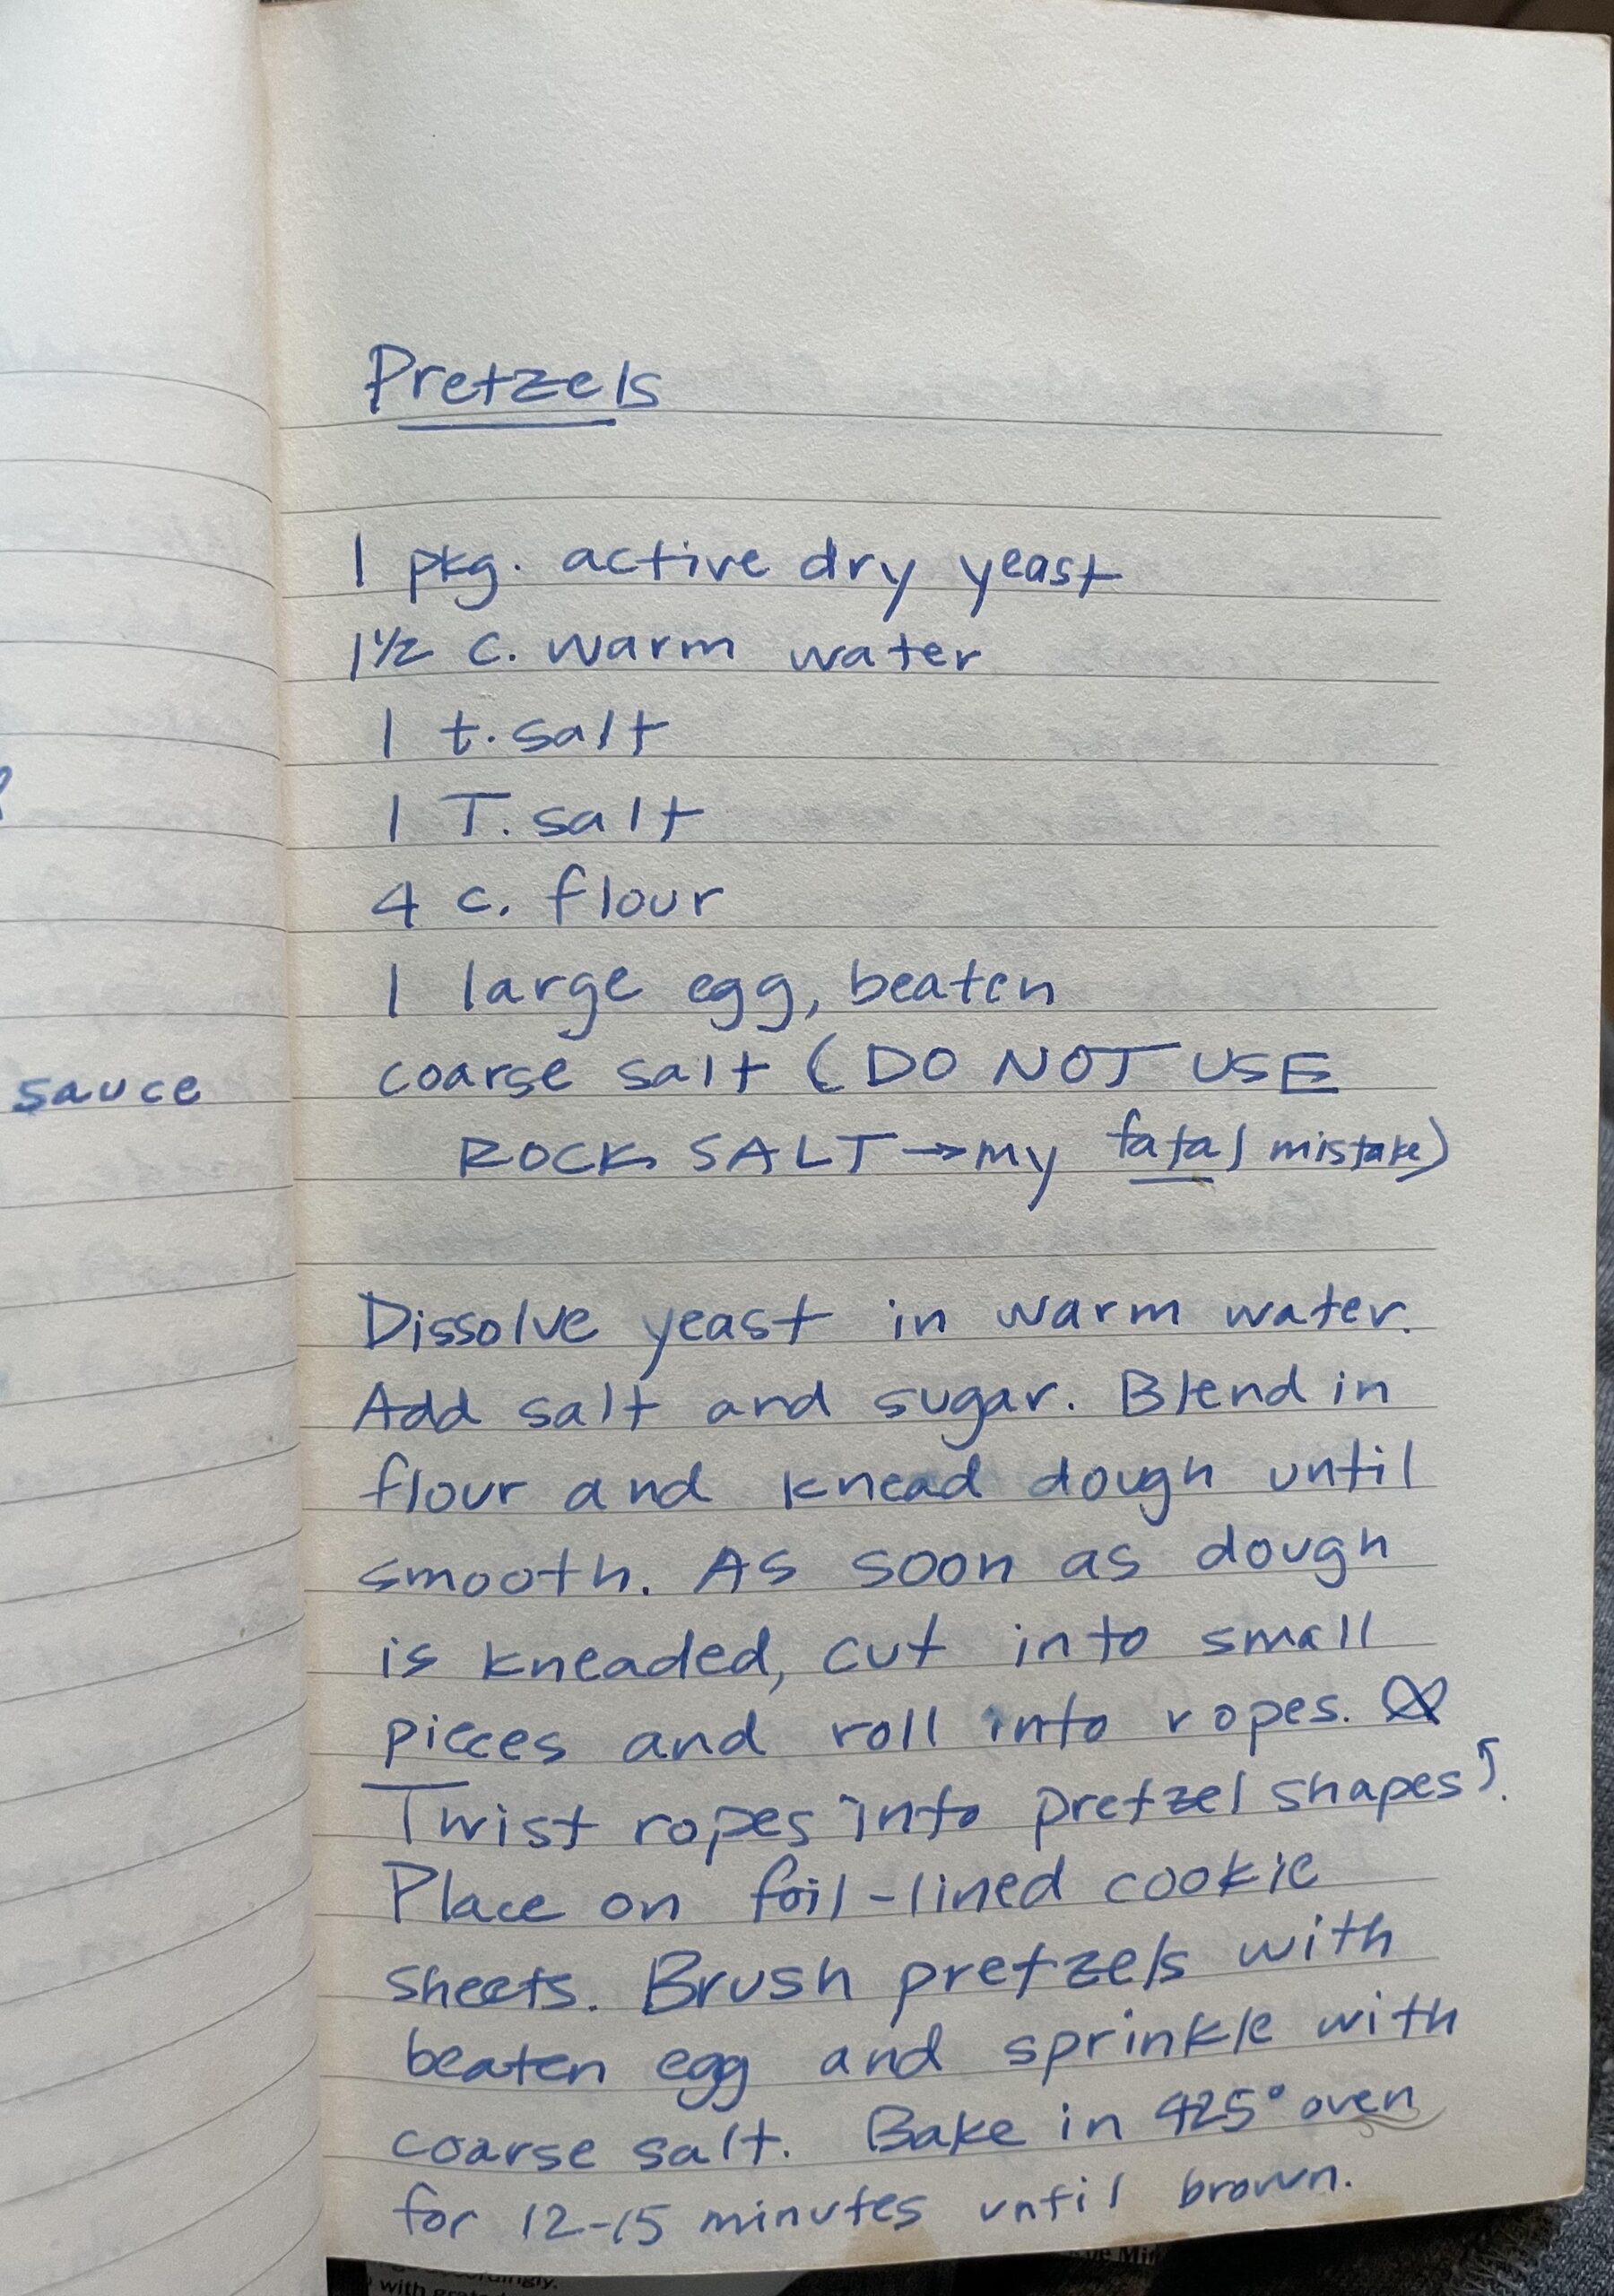 Pretzels
1 pkg. active dry yeast
1 1/2 c. warm water
1 t. salt
1 T. salt
4 c. flour
1 large egg, beaten
coarse salt (DO NOT USE
ROCK SALT → my fatal mistake)
Dissolve yeast in warm water.
Add salt and sugar. Blend in
flour and knead dough until
smooth. As soon as dough
is kneaded, cut into small
pieces and roll into ropes.
Twist ropes into pretzel shapes.
Place on foil-lined cookie
sheets. Brush pretzels with
beaten egg and sprinkle with
coarse salt. Bake in 425° oven
for 12-15 minutes until brown.
sauce
with